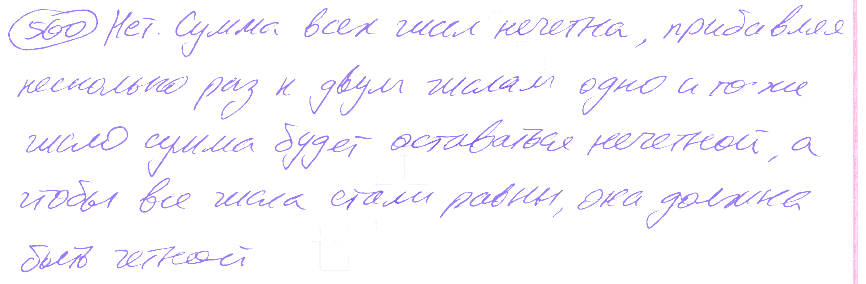 560 Нет. Сумма всех чисел нечетна, прибавляя
несколько раз к двум числам одно и то же
число сумма будет оставаться нечетной, а
чтобы все числа стали равны, она должна
быть четной